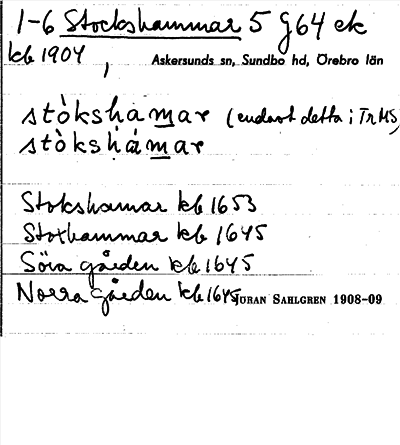 1-6 Stockshammar 5 g64 ek
kb 1904, Askersunds sn, Sundbo hd, Örebro län
stòkshamar (endast detta i TrMS)
stòkshámar
Stokshamar kb 1653
Stoxhammar kb 1645
Söra gården kb 1645
Norra gården kb 1645
GÖRAN SAHLGREN 1908-09